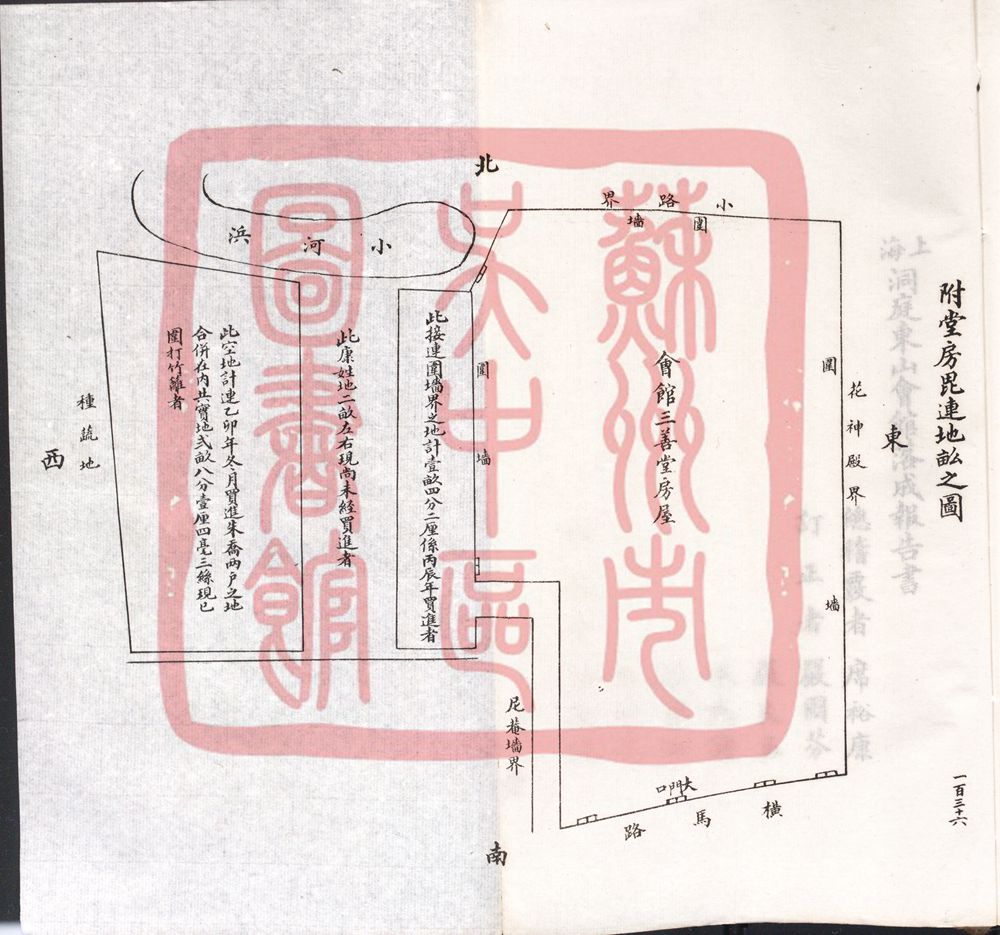 附堂房毘連地畝之圖
一百三十六
東
花神殿界
圍墻
小路界
圍墻
北
會館三善堂房屋
大門口
橫馬路
南
尼菴墻界
圍墻
此接連圍墻界之地計壹畝四分二厘係丙辰年買進者
此康姓地二畝左右現尚未經買進者
小河浜
此空地計連乙卯年冬月買進朱喬兩戶之地
合併在內共實地弍畝八分壹厘四毫三絲現已
圍打竹籬者
種蔬地
西
上海洞庭東山會館落成報告書
訂正者
嚴國芬
席裕康
蘇州市
吳中區
圖書館